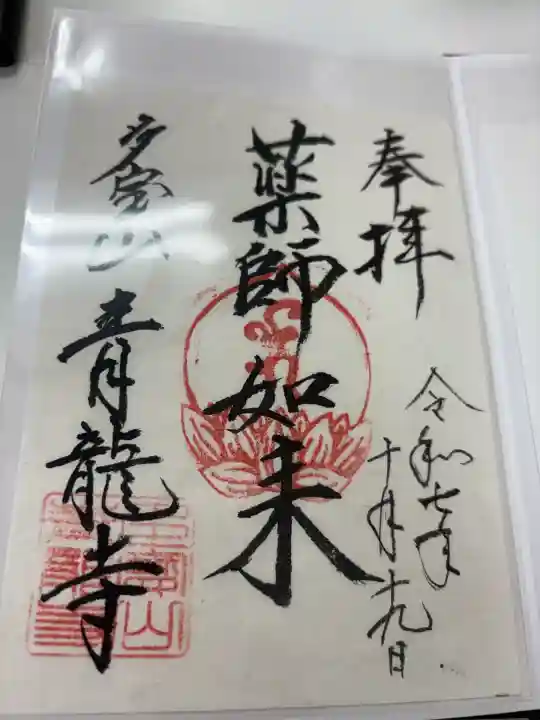 奉拝
令和七年
十月十九日
薬師如来
多宝山 青龍寺